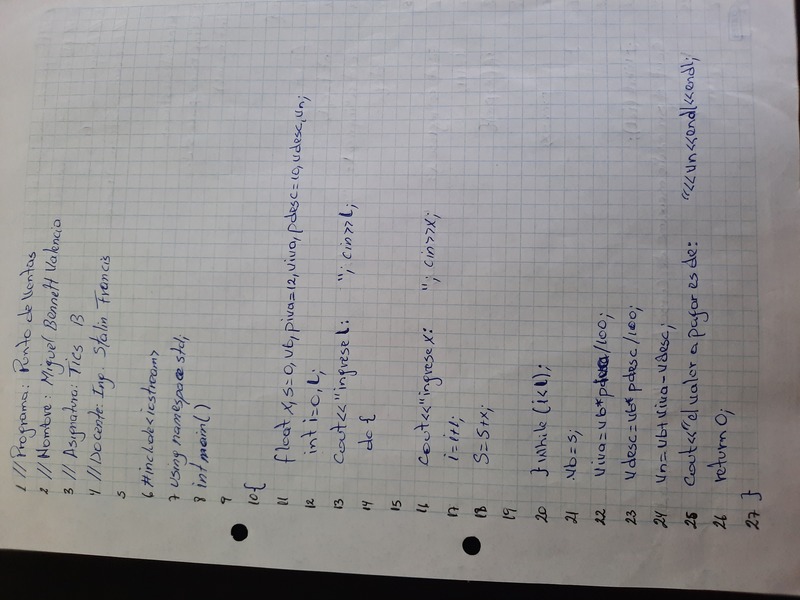 1 //Programa: Punto de Ventas
2 //Nombre: Miguel Bennett Valencia
3 //Asignatura: Tics B
4 //Docente: Ing. Stalin Francis
5
6 #include<iostream>
7 using namespace std;
8 int main()
9
10 {
11 float x, s=0, vb, piva=12, viva, pdesc=10, vdesc, vn;
12 int i=0, l;
13 cout<<"ingrese l: "; cin>>l;
14 do {
15
16 cout<<"ingrese x: "; cin>>x;
17 i=i+1;
18 S=S+x;
19
20 } while (i<l);
21 vb=s;
22 viva=vb*piva/100;
23 vdesc=vb*pdesc/100;
24 vn=vb+viva-vdesc;
25 cout<<"el valor a pagar es de: "<<vn<<endl<<endl;
26 return 0;
27 }